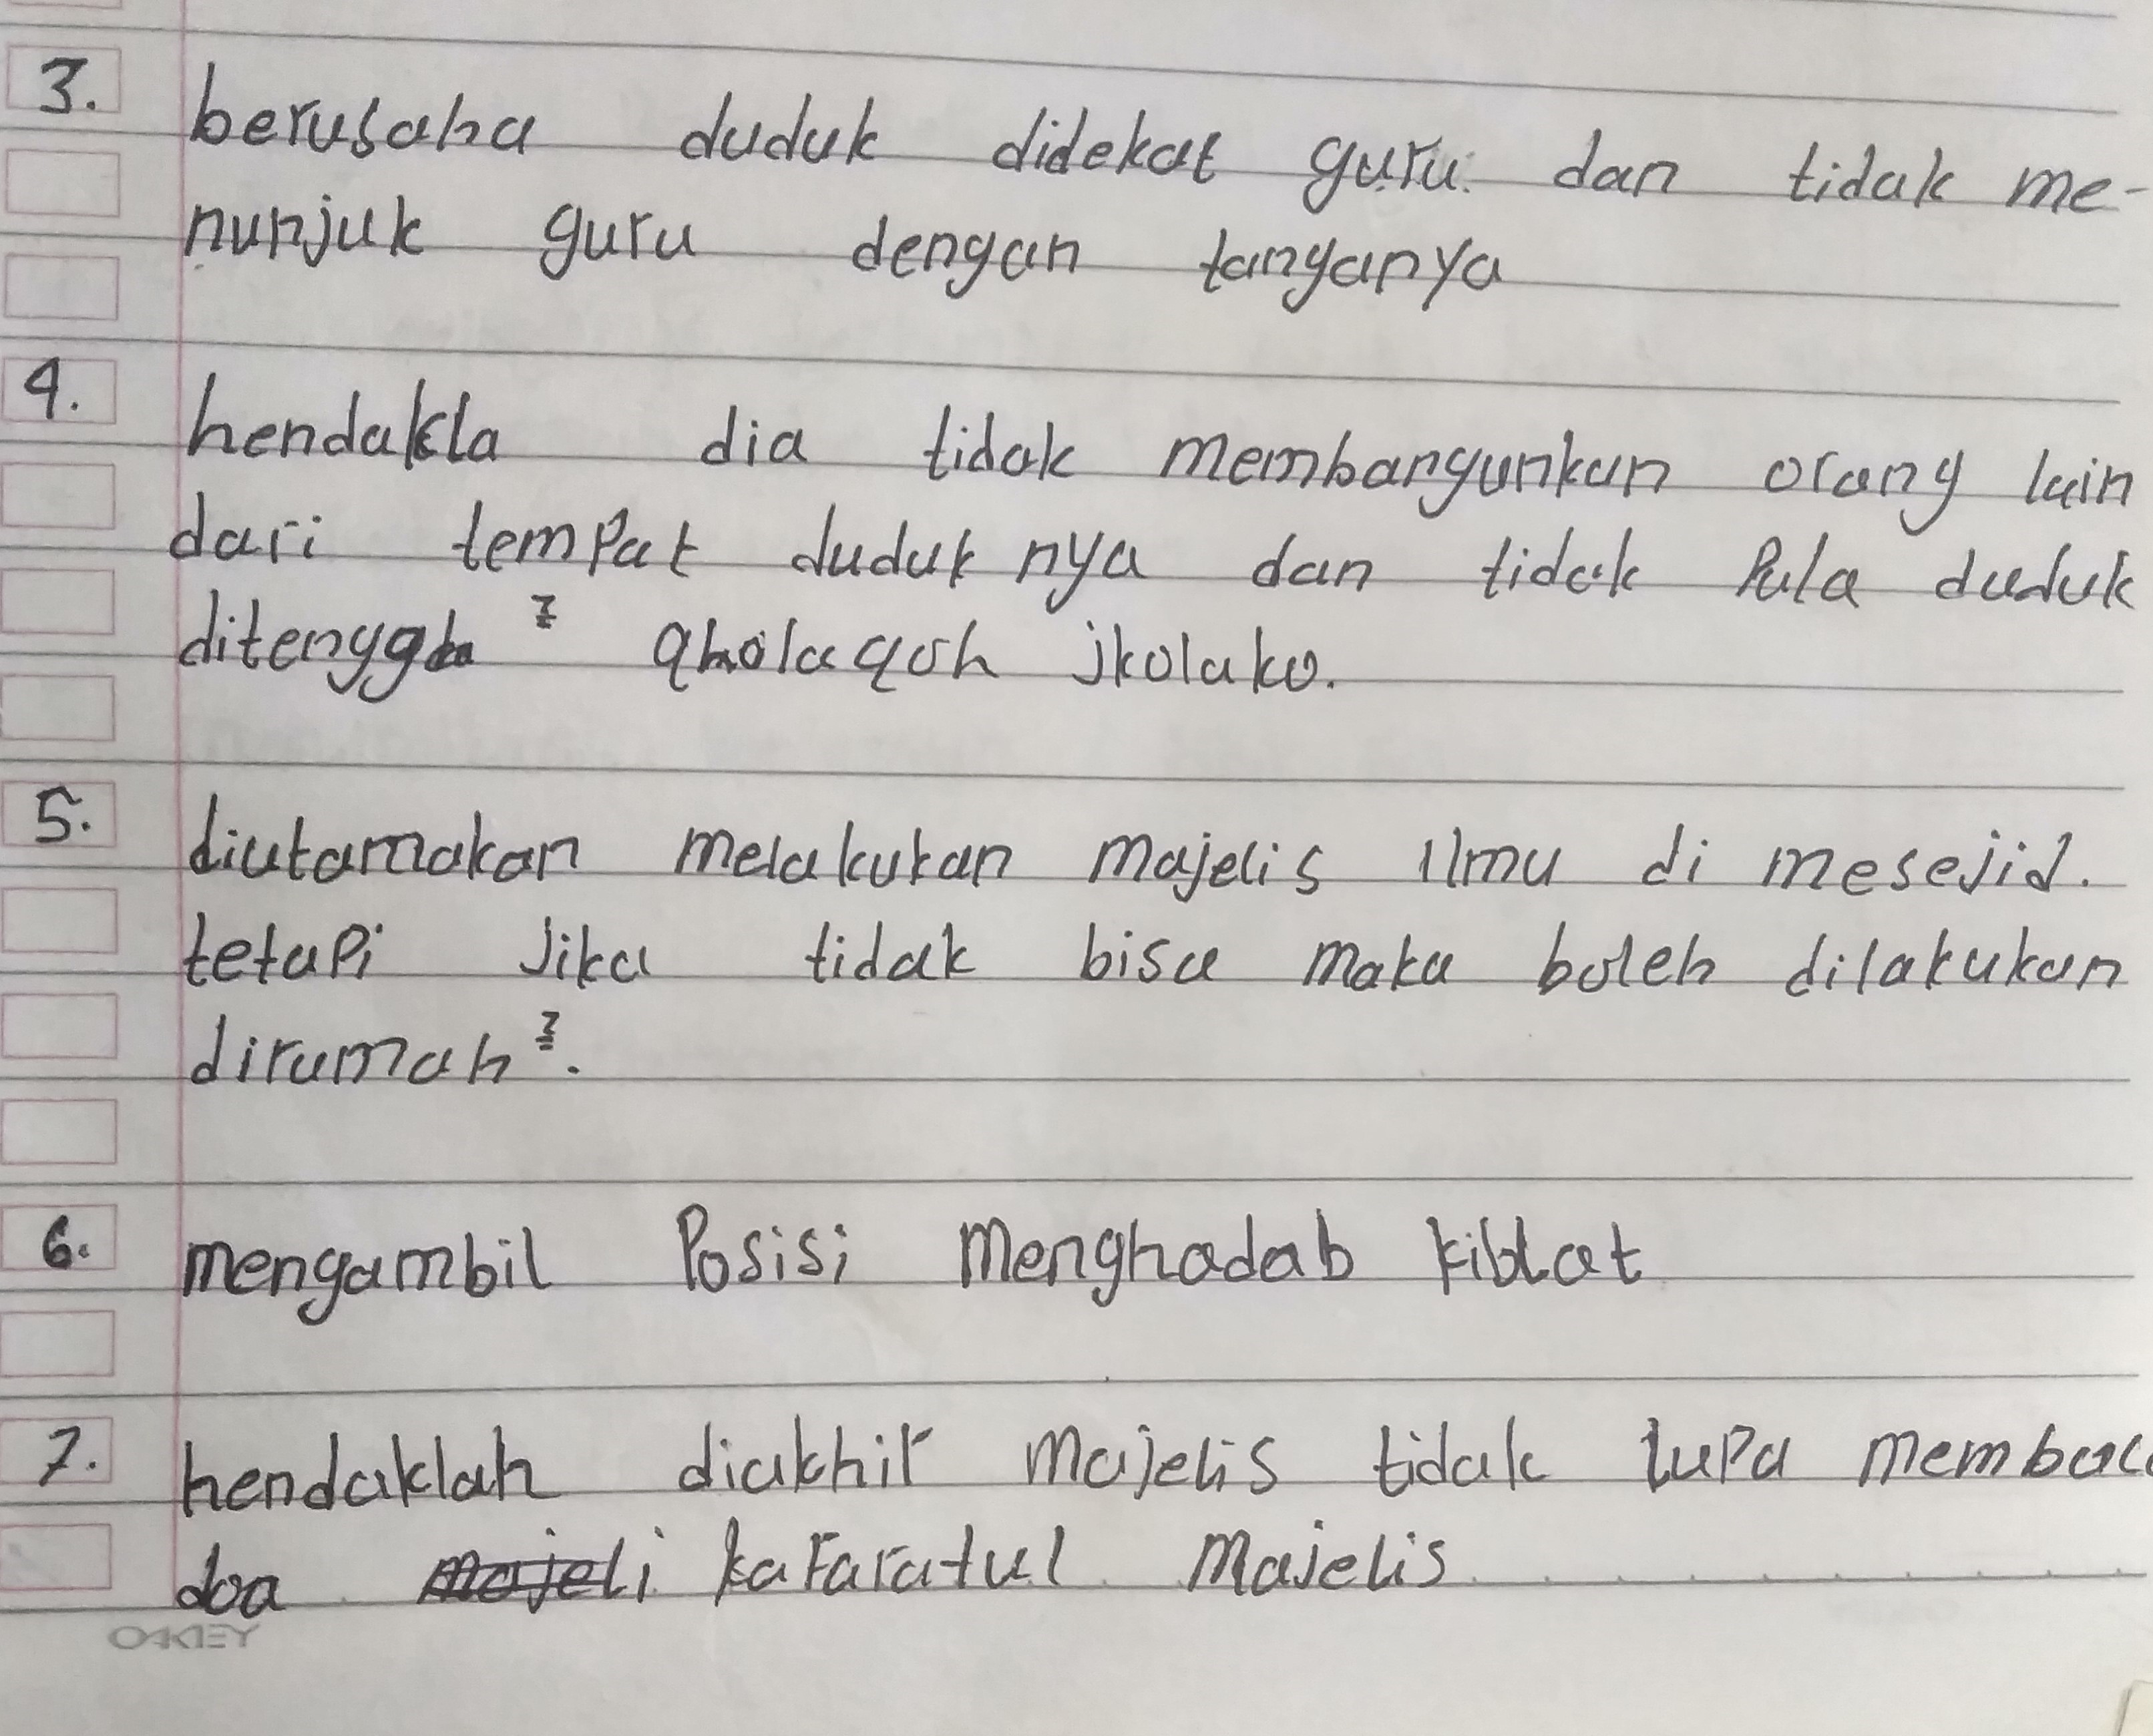 3. berusaha duduk didekat guru dan tidak me-
nunjuk guru dengan tanganya
4. hendakla dia tidak membangunkan orang lain
dari tempat duduk nya dan tidak Pula duduk
ditengga² qholaqoh
5. diutamakan melakukan majelis Ilmu di mesejid.
tetapi Jika tidak bisa maka boleh dilakukan
dirumah².
6. mengambil Posisi Menghadab kiblat
7. hendaklah diakhir majelis tidak lupa membac
doa kafaratul Majelis
OAKLEY